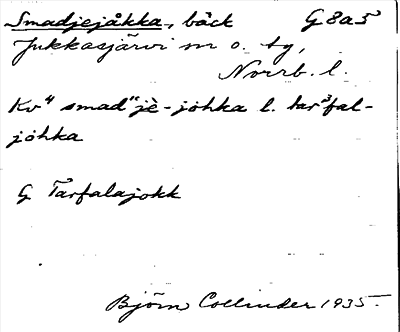 Smadjejåkka, bäck G 8a5
Jukkasjärvi sn o. tg,
Norrb. l.
Kv⁴ smad"jè-jåhka l. tar³fal-
jåhka
G Tarfalajokk
Björn Collinder 1935.